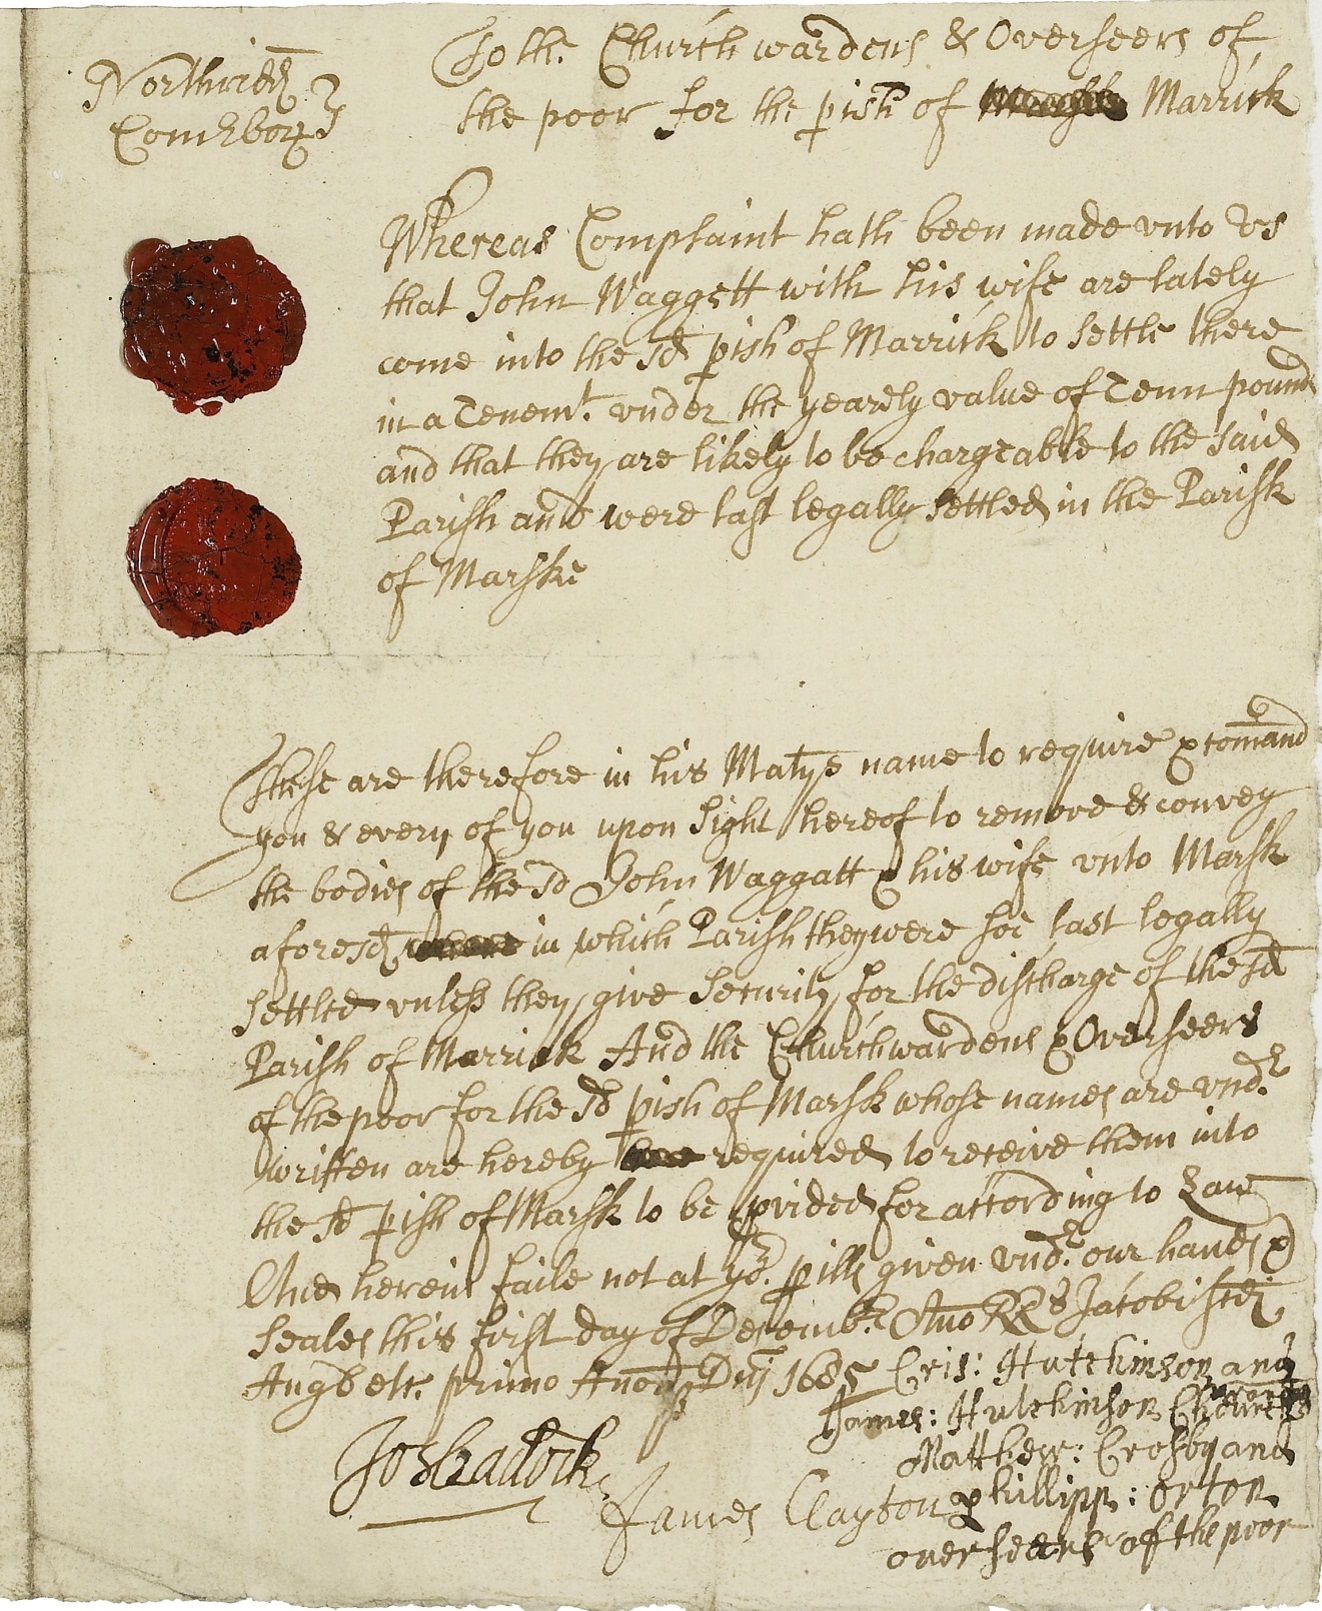 Northrid
Com Ebor
To the Church wardens & Overseers of
the poor for the pish of Marrick
Whereas Complaint hath been made vnto Vs
that John Waggett with his wife are lately
come into the sd pish of Marrick to settle there
in a Tenemt. vnder the yearely value of Tenn pound
and that they are likely to be chargeable to the said
Parish and were last legally settled in the Parish
of Marske
These are therefore in his Matyes name to require & comand
you & every of you upon sight hereof to remove & convey
the bodies of the sd John Waggatt & his wife vnto Marsk
aforesd in which Parish they were soe last legally
settled vnless they give security for the discharge of the sd
Parish of Marrick And the Churchwardens & Overseers
of the poor for the sd pish of Marsk whose names are vndr
written are hereby required to receive them into
the sd pish of Marsk to be pvided for according to Law
And herein faile not at yor. pills given vndr. our hands &
seales this first day of Decembr. Ano RRs Jacobi scdi
Angl &c etc. primo Anoq Dni 1685
Cris: Hutchinson and
James: Hutchinson Church
Matthew: Crosby and
phillipp: Orton
overseers of the poor
Jo Bradock
James Clayton